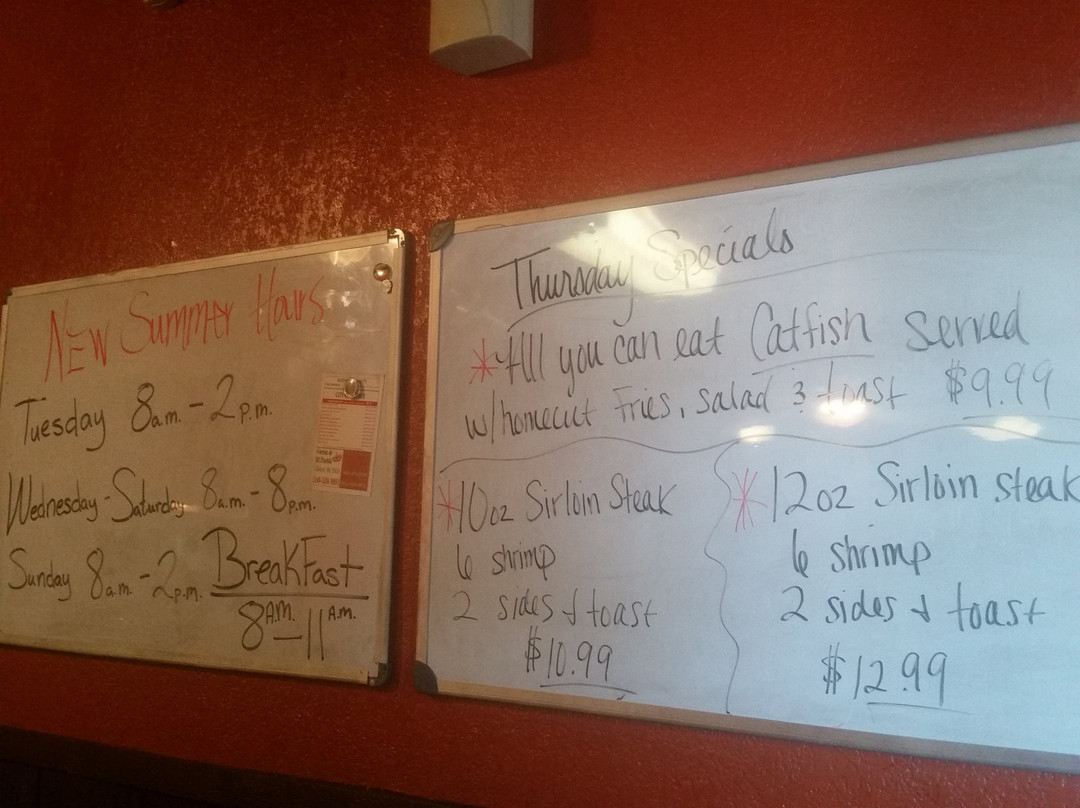 New Summer Hours
Tuesday 8a.m. - 2p.m.
Wednesday - Saturday 8a.m. - 8p.m.
Sunday 8a.m. - 2p.m. BreakFast
8A.M. - 11A.M.
Thursday Specials
*All you can eat Catfish served
w/homecut Fries, salad & toast $9.99
*10oz Sirloin Steak
6 shrimp
2 sides & toast
$10.99
*12oz Sirloin steak
6 shrimp
2 sides & toast
$12.99